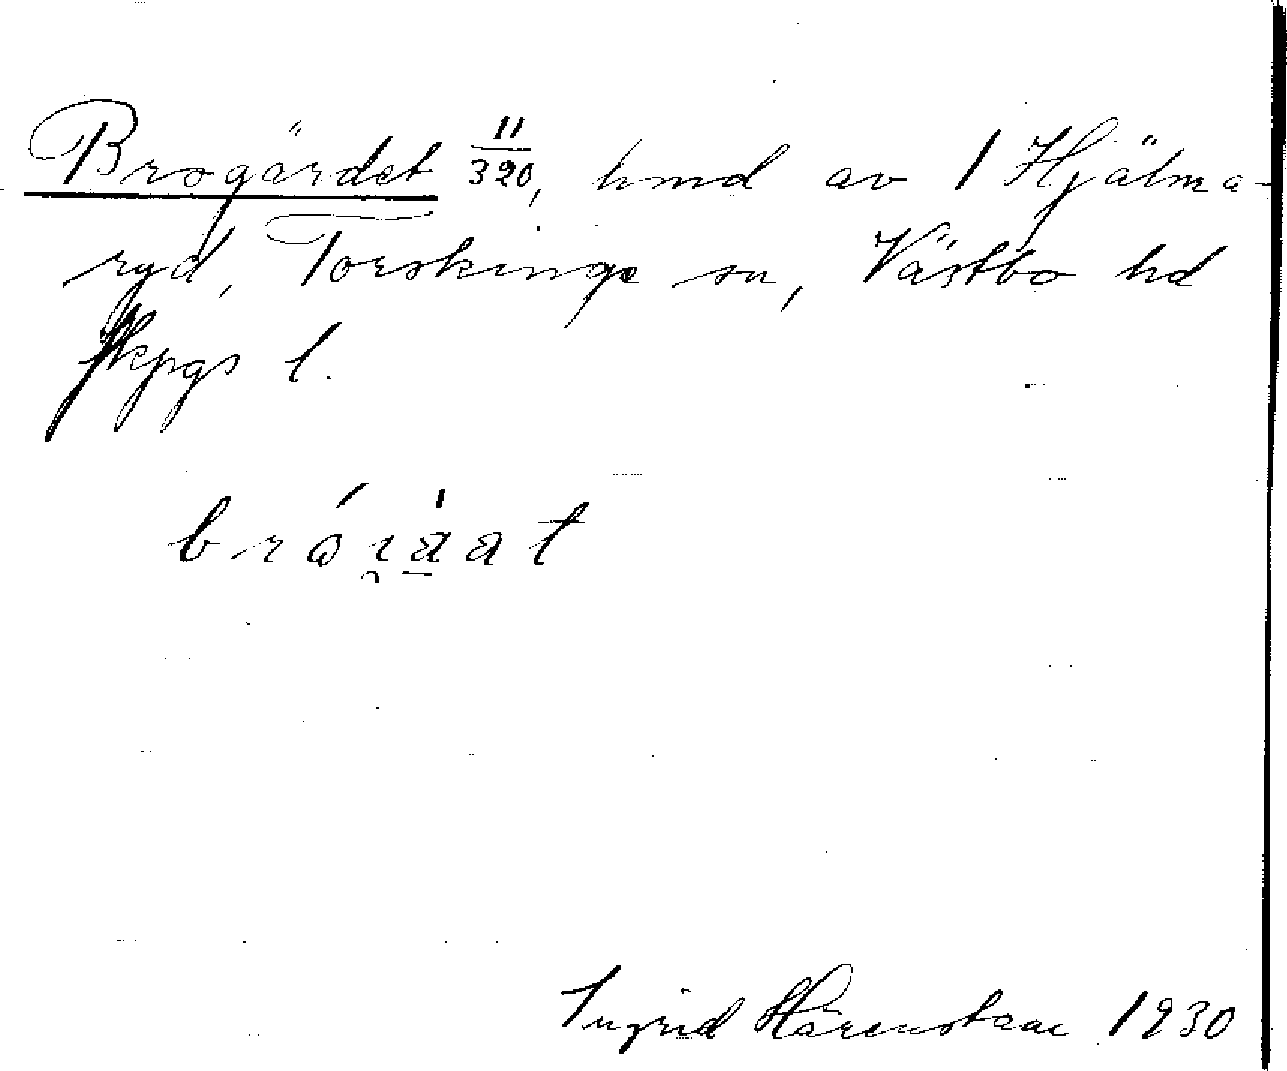 Brogärdet 11/320, hmd av 1 Hjälma-
ryd, Torskinge sn, Västbo hd
Jkpgs l.
Ingrid 1930